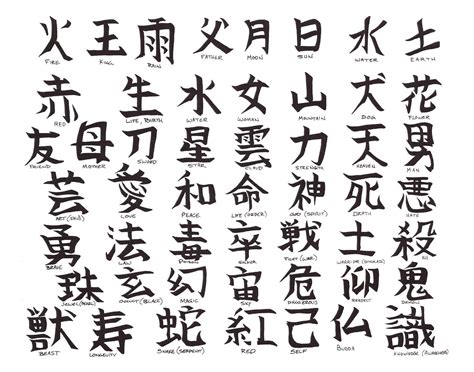 火 王 雨 父 月 日 水 土
FIRE KING RAIN FATHER MOON SUN WATER EARTH
赤 生 水 女 山 犬 花
RED LIFE, BIRTH WATER WOMAN MOUNTAIN DOG FLOWER
友 母 刀 星 雲 力 天 男
FRIEND MOTHER SWORD STAR CLOUD STRENGTH HEAVEN MAN
芸 愛 和 命 神 死 悪
LOVE PEACE LIFE (ORDER) GOD (SPIRIT) DEATH HATE
勇 法 毒 卒 戦 士 殺
BRAVE LAW POISON FIGHT (WAR) KILL
珠 玄 幻 宙 危 仰 鬼
JEWEL (PEARL) OCCULT (BLACK) MAGIC SKY DANGEROUS RESPECT DEMON
獣 寿 蛇 紅 己 仏 識
BEAST LONGEVITY SNAKE (SERPENT) RED SELF BUDDA